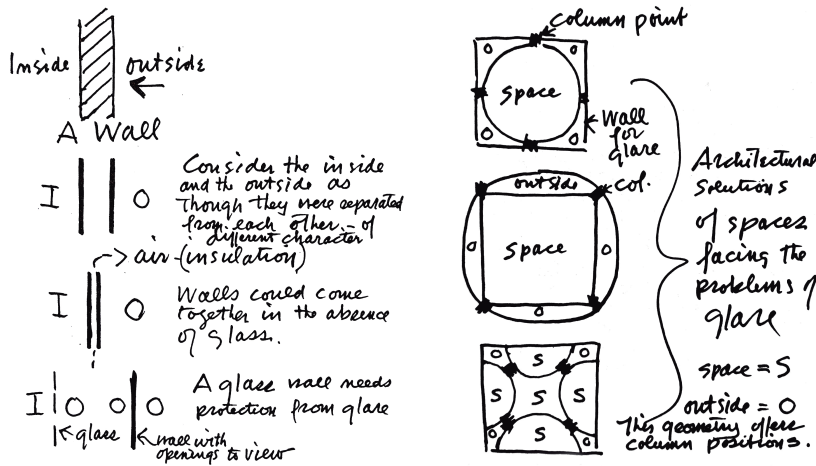 Inside
outside
A Wall
I
O
Consider the inside
and the outside as
though they were separated
from each other - of
different character
air - (insulation)
I
O
Walls could come
together in the absence
of glass.
I
O
O
O
A glass wall needs
protection from glare
glass
wall with
openings to view
column point
O
O
space
O
O
Wall
for
glare
outside
col.
O
space
O
O
O
S
O
S
S
S
O
S
O
Architectural
solutions
of spaces
facing the
problems of
glare
space = S
outside = O
This geometry offers
column positions.